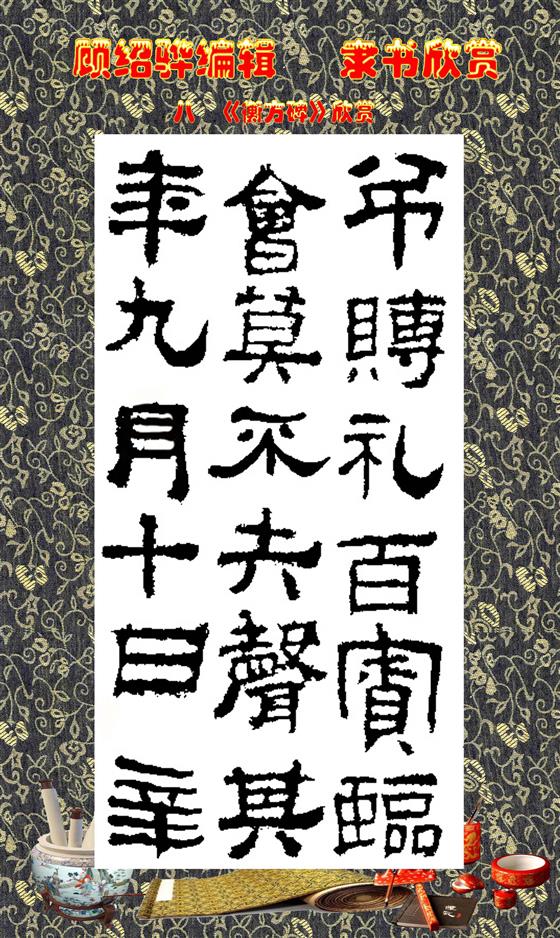 顾绍骅编辑 隶书欣赏
八 《衡方碑》欣赏
吊賻礼百賓臨
會莫不失聲其
年九月十日辛